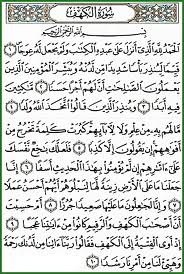 سُورَةُ الكَهْفِ
بِسْمِ اللَّهِ الرَّحْمَٰنِ الرَّحِيمِ
ٱلْحَمْدُ لِلَّهِ ٱلَّذِىٓ أَنزَلَ عَلَىٰ عَبْدِهِ ٱلْكِتَٰبَ وَلَمْ يَجْعَل لَّهُۥ عِوَجَاۜ ١
قَيِّمًا لِّيُنذِرَ بَأْسًا شَدِيدًا مِّن لَّدُنْهُ وَيُبَشِّرَ ٱلْمُؤْمِنِينَ ٱلَّذِينَ
يَعْمَلُونَ ٱلصَّٰلِحَٰتِ أَنَّ لَهُمْ أَجْرًا حَسَنًا ٢ مَّٰكِثِينَ
فِيهِ أَبَدًا ٣ وَيُنذِرَ ٱلَّذِينَ قَالُوا۟ ٱتَّخَذَ ٱللَّهُ وَلَدًا ٤
مَّا لَهُم بِهِۦ مِنْ عِلْمٍ وَلَا لِءَابَآئِهِمْ كَبُرَتْ كَلِمَةً تَخْرُجُ مِنْ
أَفْوَٰهِهِمْ إِن يَقُولُونَ إِلَّا كَذِبًا ٥ فَلَعَلَّكَ بَٰخِعٌ نَّفْسَكَ
عَلَىٰٓ ءَاثَٰرِهِمْ إِن لَّمْ يُؤْمِنُوا۟ بِهَٰذَا ٱلْحَدِيثِ أَسَفًا ٦ إِنَّا
جَعَلْنَا مَا عَلَى ٱلْأَرْضِ زِينَةً لَّهَا لِنَبْلُوَهُمْ أَيُّهُمْ أَحْسَنُ عَمَلًا
٧ وَإِنَّا لَجَٰعِلُونَ مَا عَلَيْهَا صَعِيدًا جُرُزًا ٨ أَمْ حَسِبْتَ
أَنَّ أَصْحَٰبَ ٱلْكَهْفِ وَٱلرَّقِيمِ كَانُوا۟ مِنْ ءَايَٰتِنَا عَجَبًا ٩ إِذْ
أَوَى ٱلْفِتْيَةُ إِلَى ٱلْكَهْفِ فَقَالُوا۟ رَبَّنَآ ءَاتِنَا مِن لَّدُنكَ رَحْمَةً
وَهَيِّئْ لَنَا مِنْ أَمْرِنَا رَشَدًا ١٠